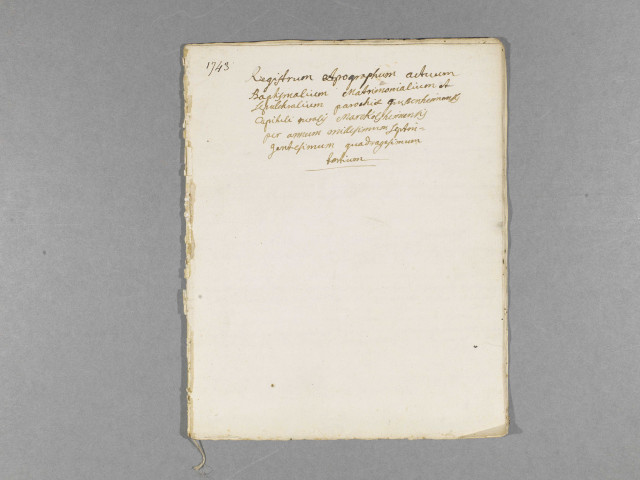 1743
Registrum Apographum actuum
Baptismalium Matrimonialium et
Sepulchralium parochiæ
Capituli ruralis Marckolsheimensis
per annum millesimum septin-
gentesimum quadragesimum
tertium